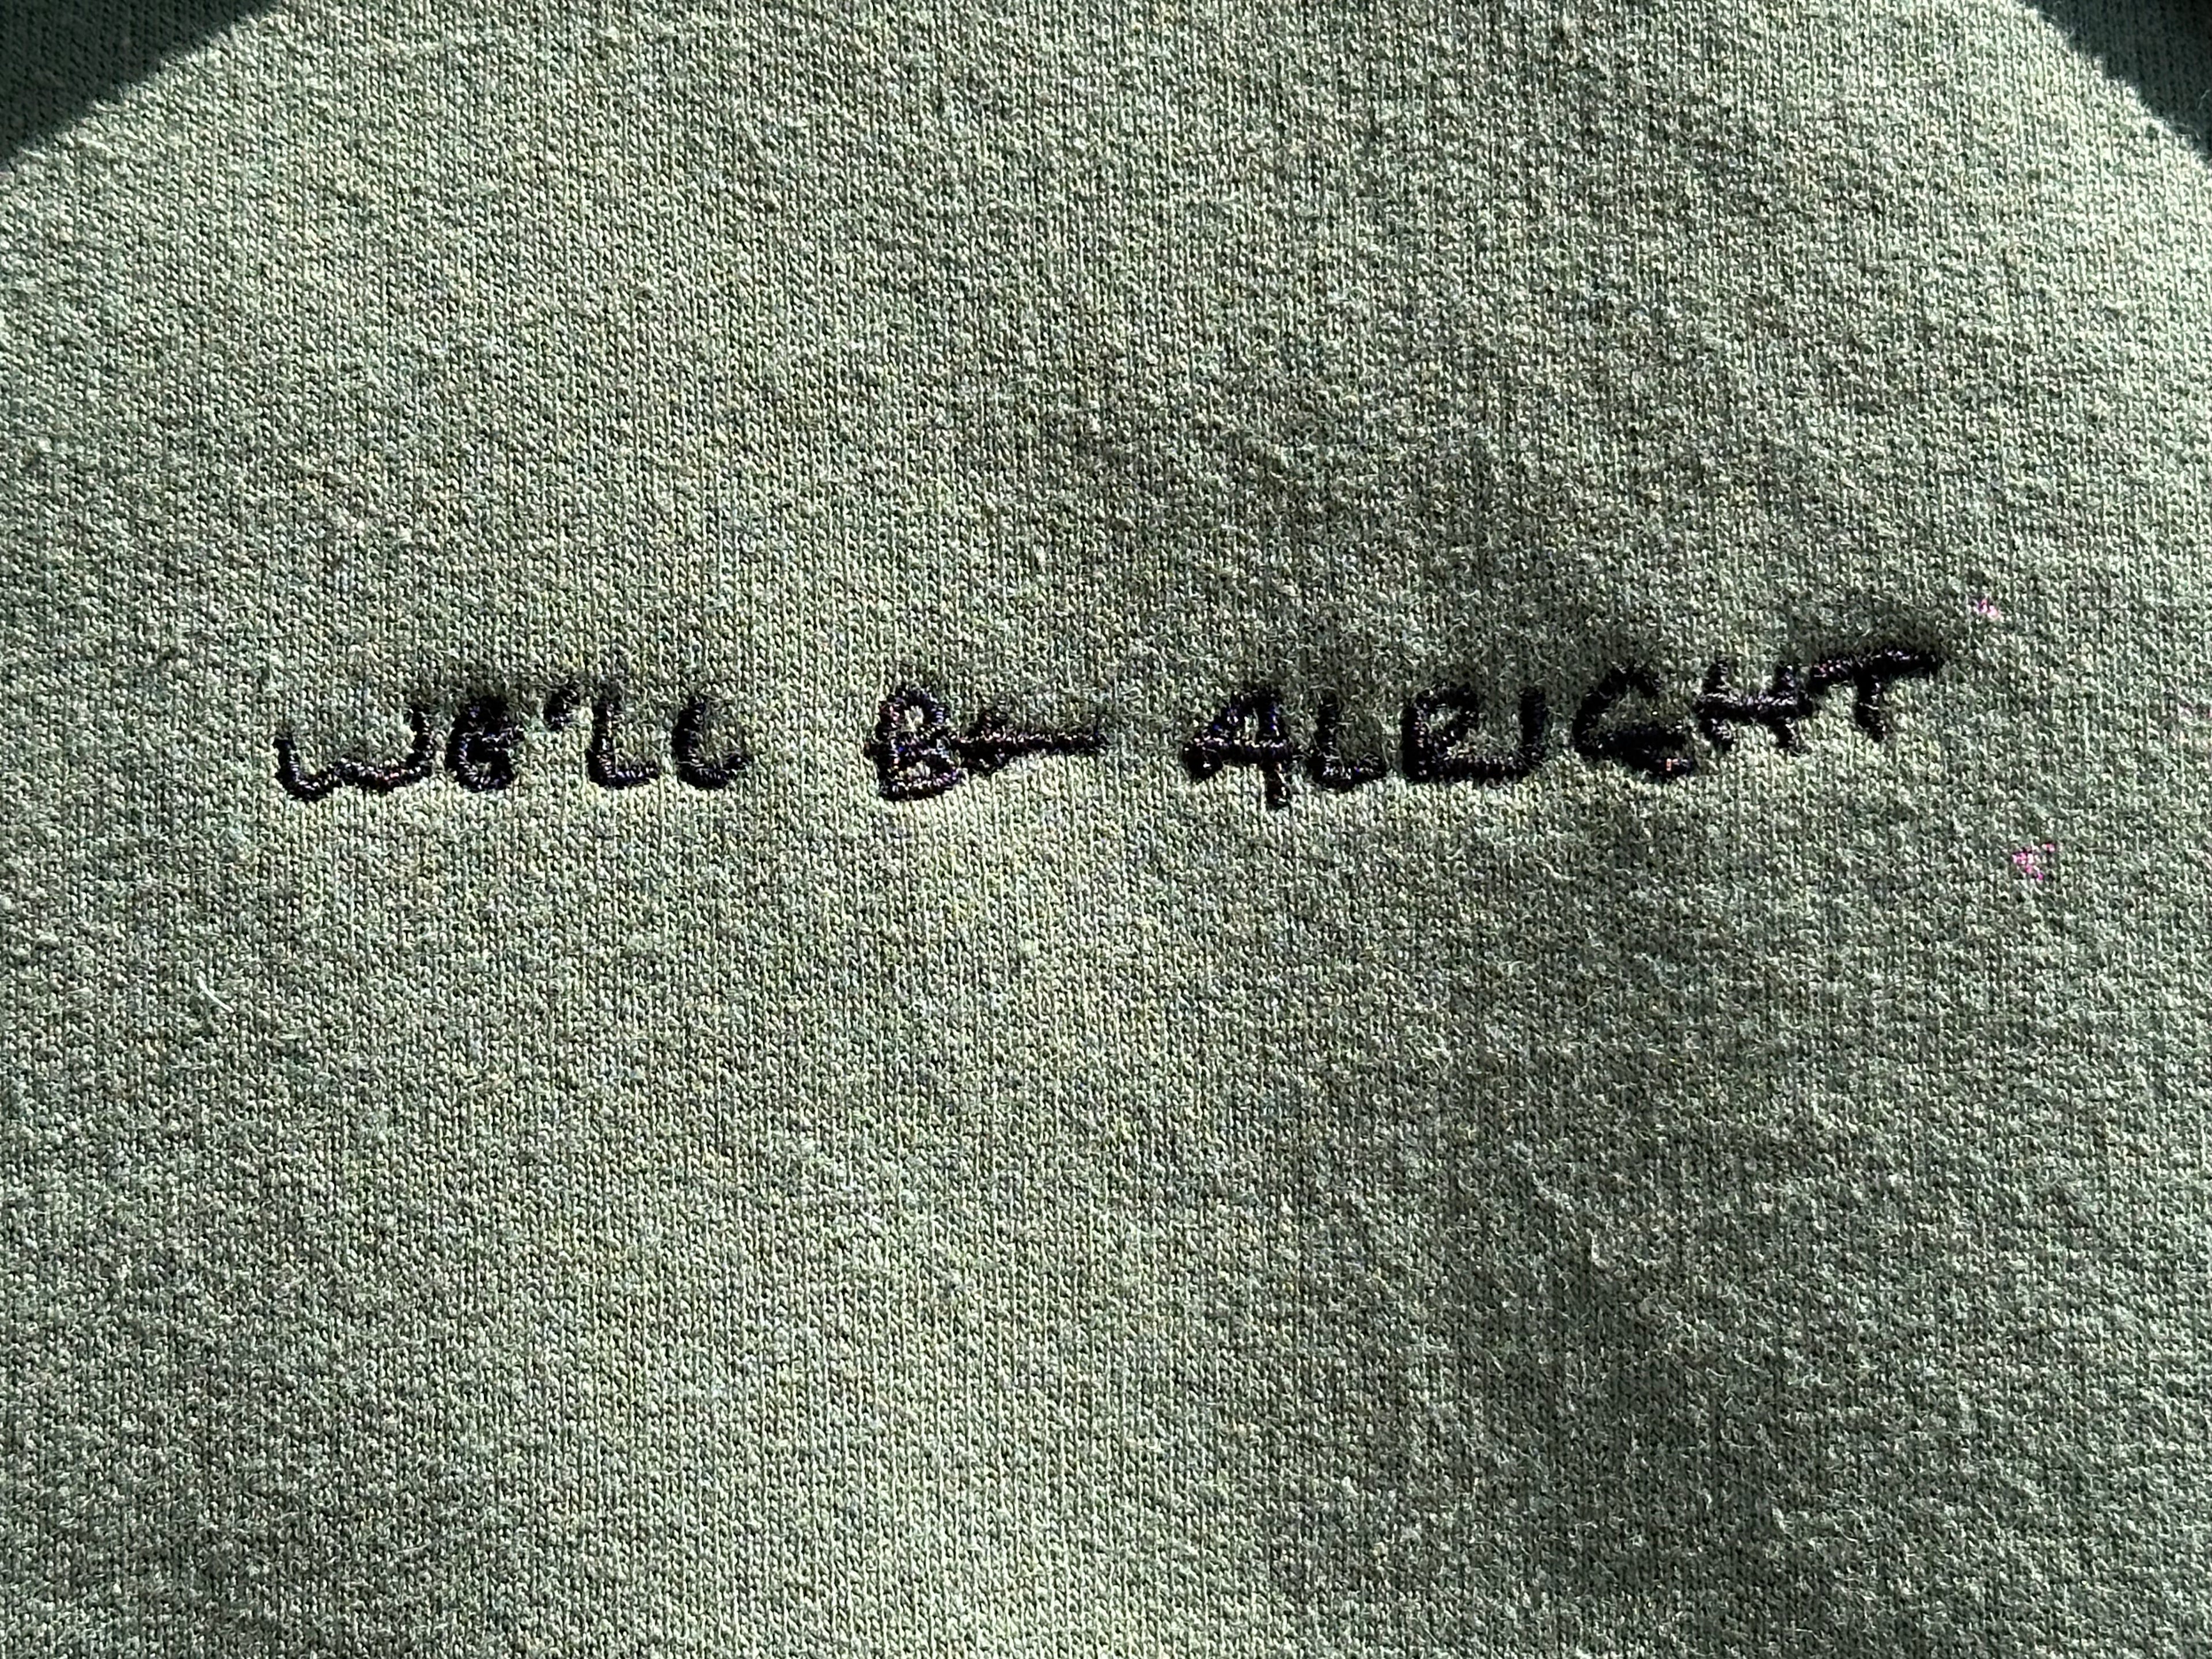 WE'LL BE ALRIGHT